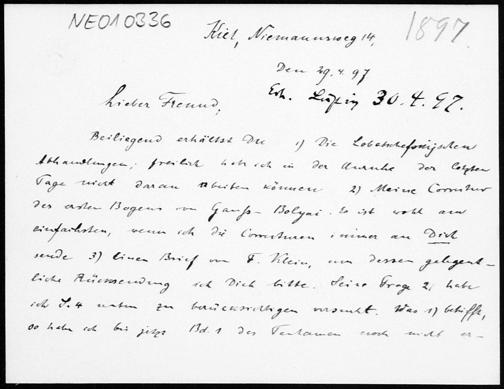 NE010336
1897.
Kiel, Niemannsweg 14,
Den 29.4.97
Erh. Leipzig 30.4.97.
Lieber Freund,
Beiliegend erhältst Du 1) Die Lobatschefskijschen
Abhandlungen; freilich habe ich in der Unruhe der letzten
Tage nicht daran arbeiten können 2) Meine Correctur
des ersten Bogens von Gauß-Bolyai. Es ist wohl am
einfachsten, wenn ich die Correcturen immer an Dich
sende 3) Einen Brief von F. Klein, um dessen gelegent-
liche Rücksendung ich Dich bitte. Seine Frage 2, habe
ich S. 4 unten zu berücksichtigen versucht. Was 1) betrifft,
so habe ich bis jetzt Bd 1 des Tentamen noch nicht er-